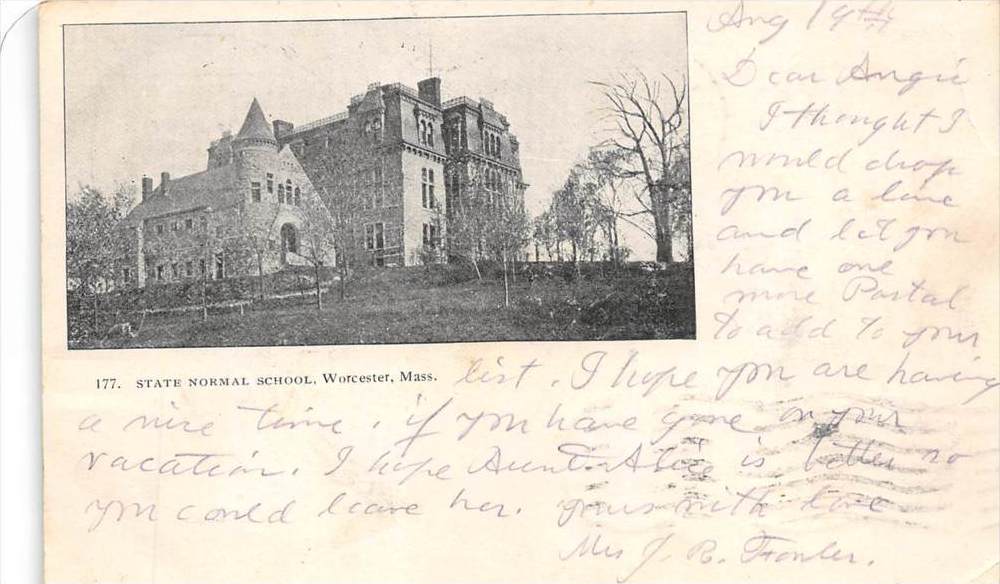 Aug 19th
Dear Angie
I thought I
would drop
you a line
and let you
have one
more Postal
to add to your
177. STATE NORMAL SCHOOL, Worcester, Mass.
list. I hope you are having
a nice time, if you have gone on your
vacation. I hope Aunt Alice is better so
you could leave her. yours with love
Mrs J. B. Fowler.